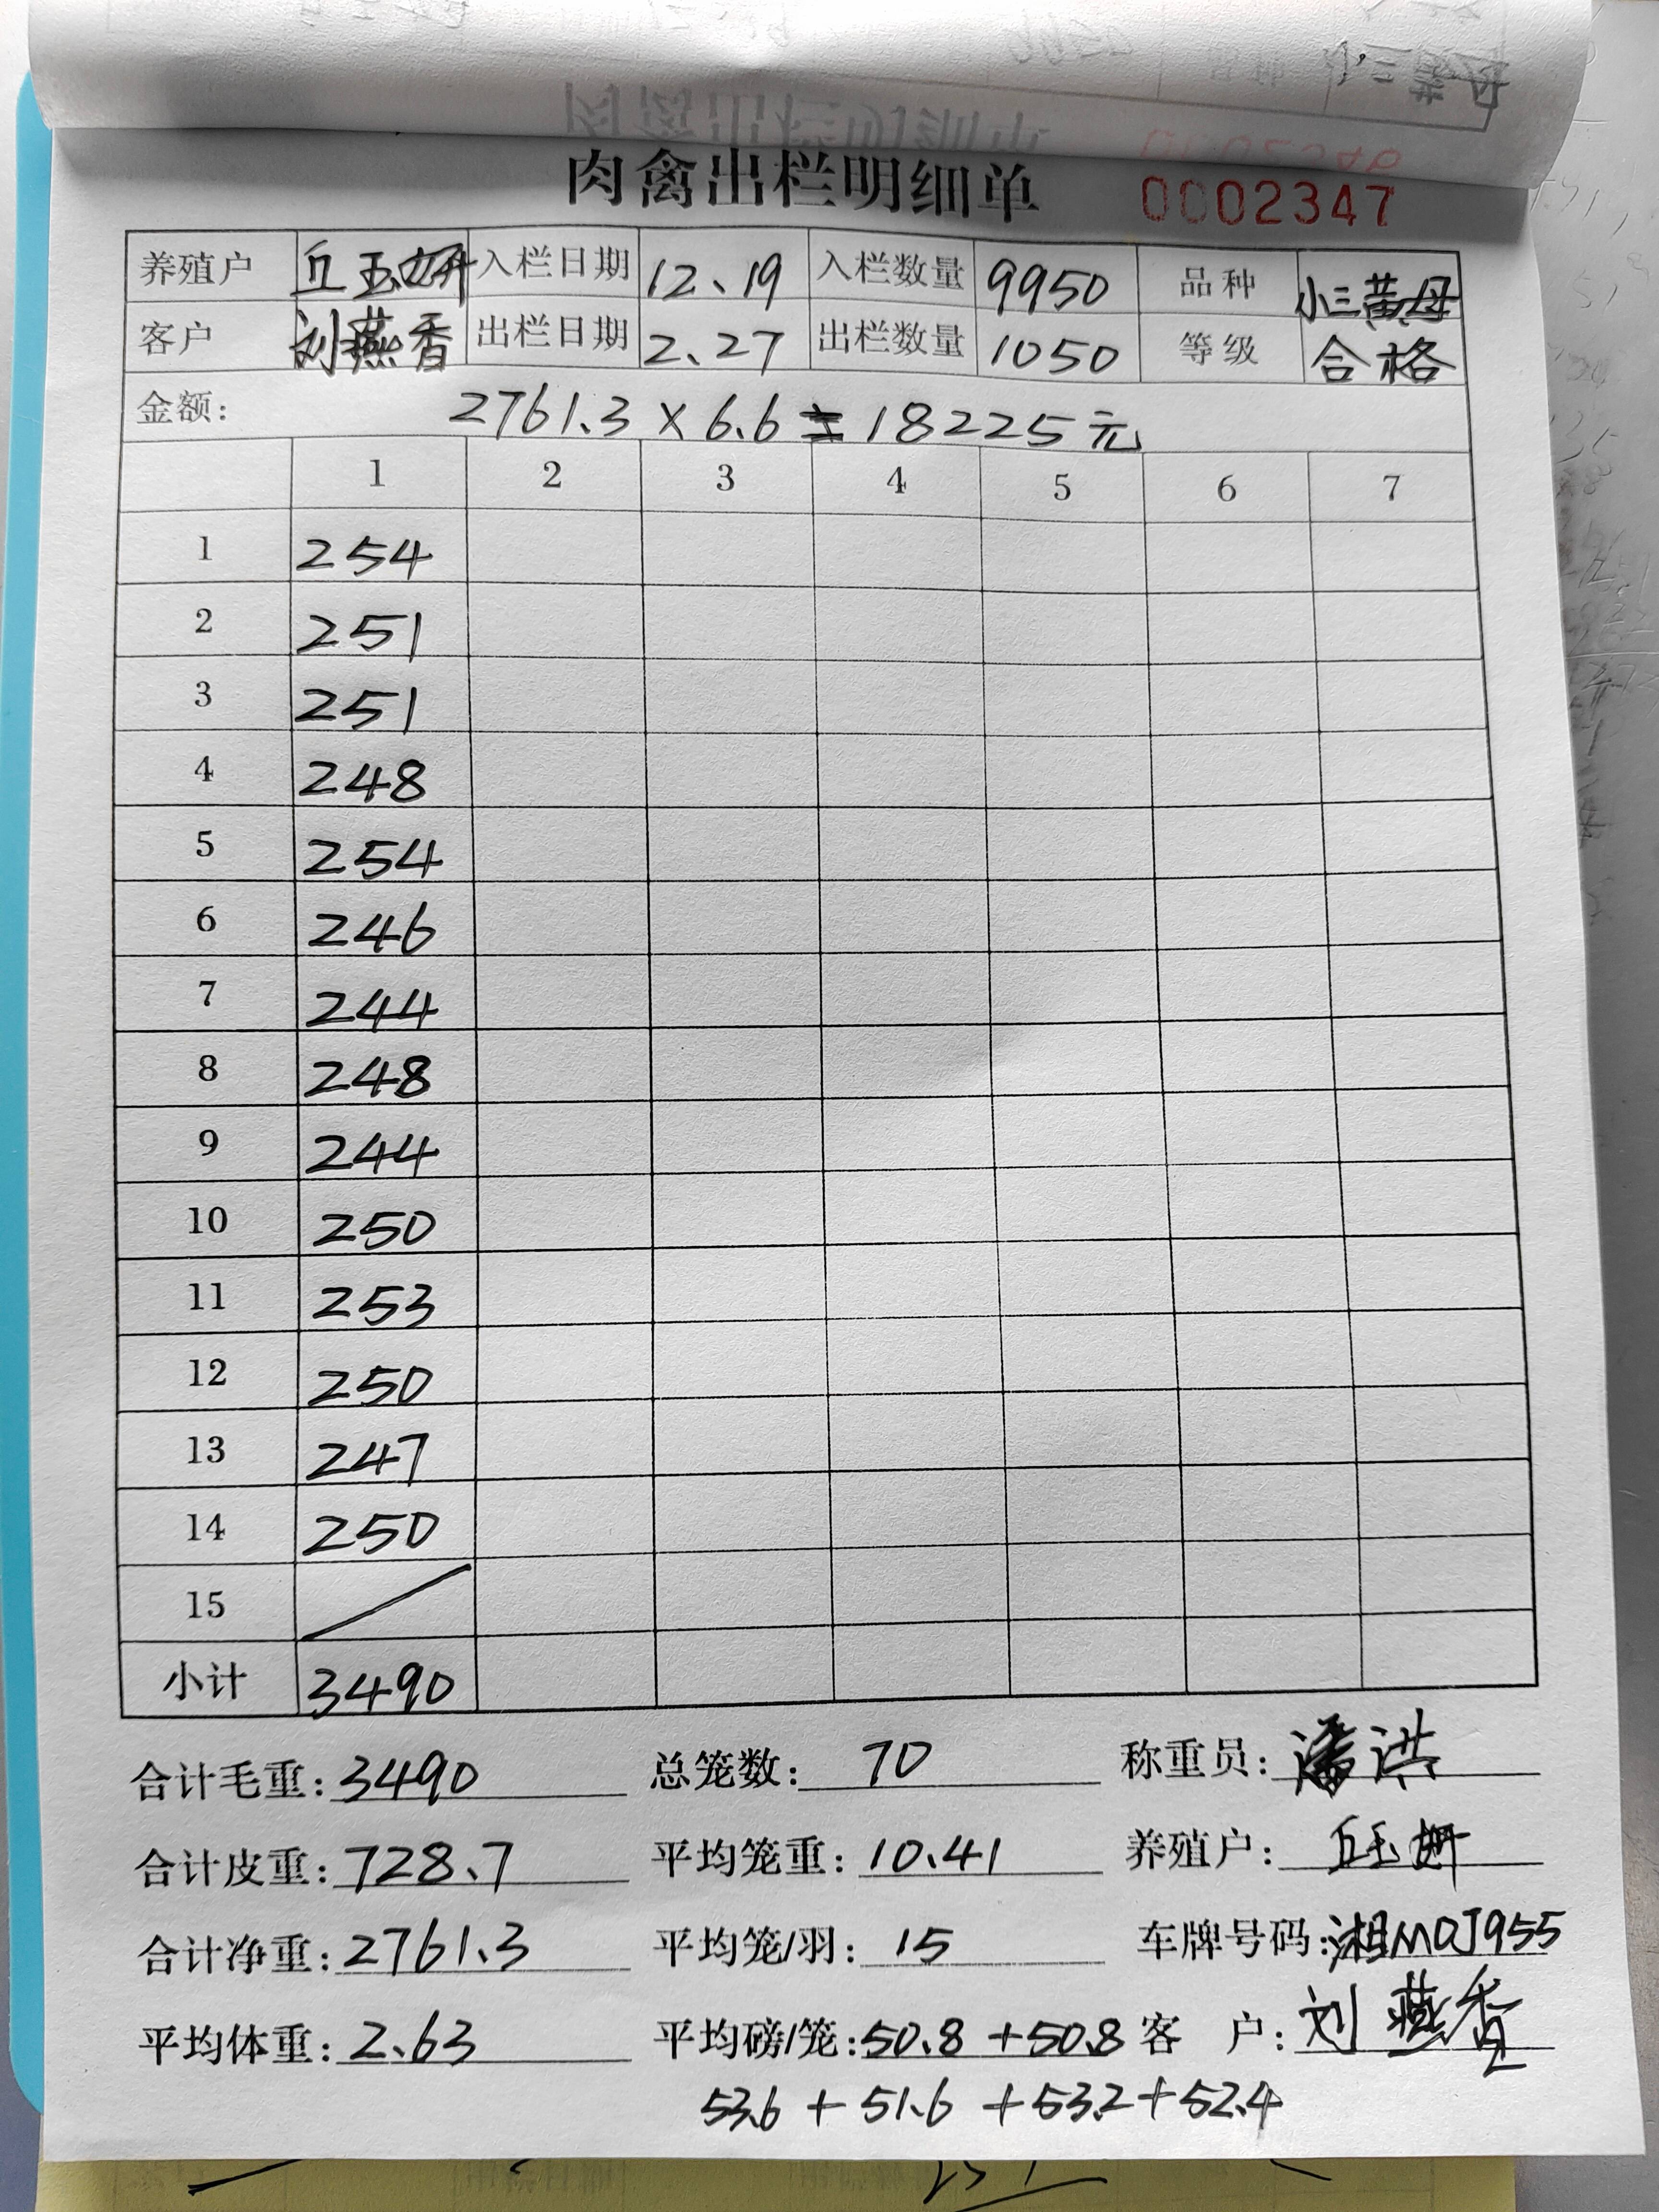 肉禽出栏明细单 0002347
养殖户 丘玉妍 入栏日期 12、19 入栏数量 9950 品种 小三黄母
客户 刘燕香 出栏日期 2、27 出栏数量 1050 等级 合格
金额: 2761.3 × 6.6 = 18225元
1 2 3 4 5 6 7
1 254
2 251
3 251
4 248
5 254
6 246
7 244
8 248
9 244
10 250
11 253
12 250
13 247
14 250
15
小计 3490
合计毛重:3490 总笼数: 70 称重员: 潘洪
合计皮重:728、7 平均笼重: 10.41 养殖户: 丘玉妍
合计净重:2761、3 平均笼/羽: 15 车牌号码:湘M0J955
平均体重: 2、63 平均磅/笼:50.8 +50.8 客 户: 刘燕香
53.6 + 51.6 + 53.2 + 52.4